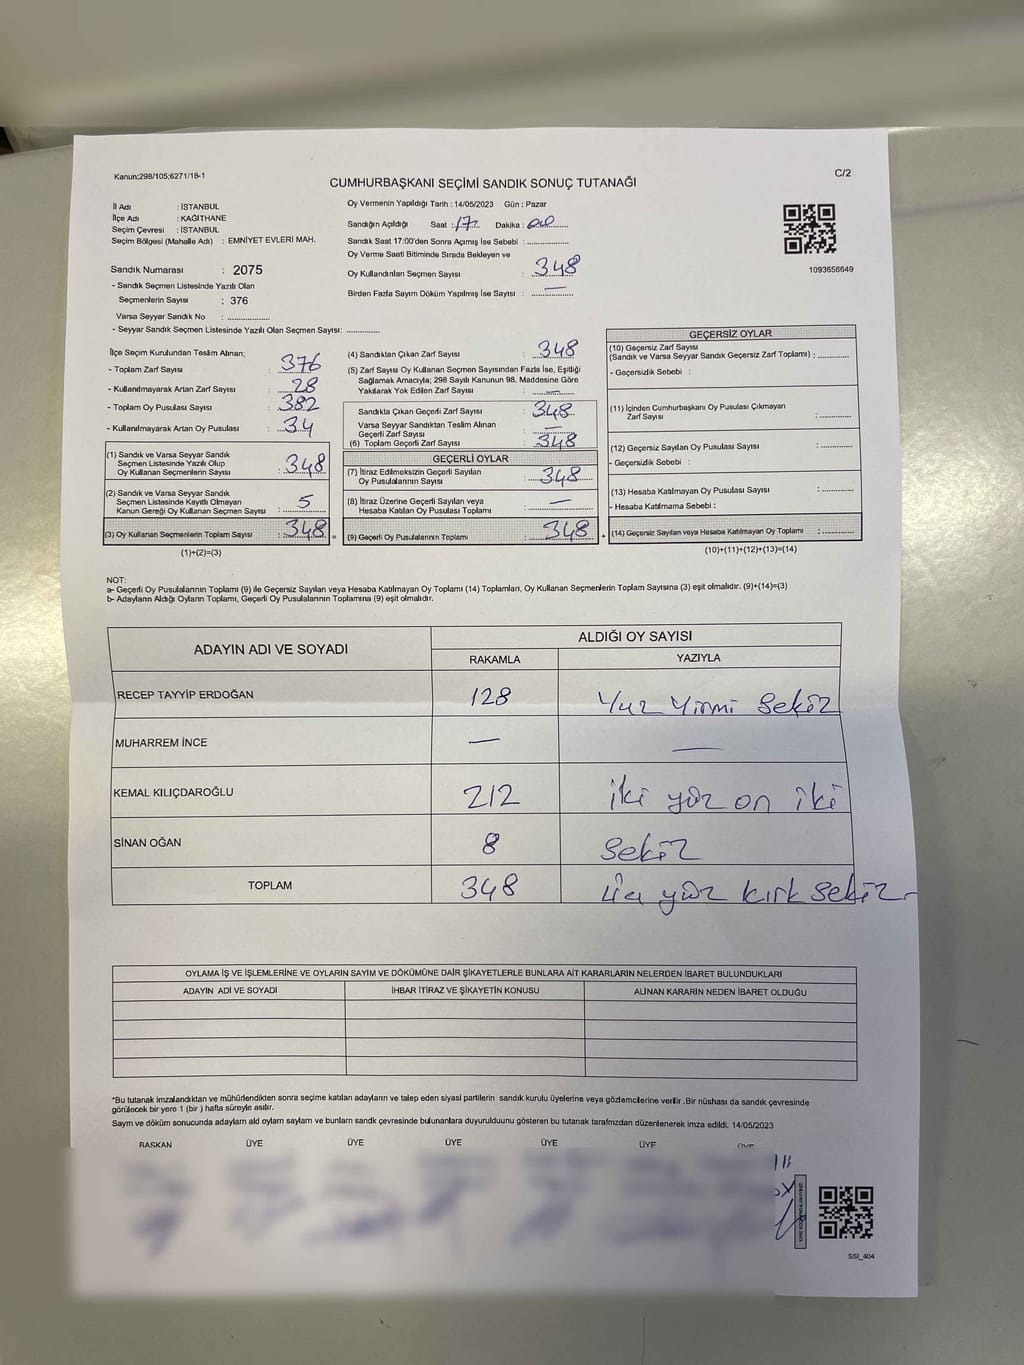 Kanun;298/105;6271/18-1
C/2
CUMHURBAŞKANI SEÇİMİ SANDIK SONUÇ TUTANAĞI
İl Adı : İSTANBUL
İlçe Adı : KAĞITHANE
Seçim Çevresi : İSTANBUL
Seçim Bölgesi (Mahalle Adı) : EMNİYET EVLERİ MAH.
Sandık Numarası : 2075
- Sandık Seçmen Listesinde Yazılı Olan
Seçmenlerin Sayısı : 376
Varsa Seyyar Sandık No : ................
- Seyyar Sandık Seçmen Listesinde Yazılı Olan Seçmen Sayısı: ............
Oy Vermenin Yapıldığı Tarih : 14/05/2023 Gün : Pazar
Sandığın Açıldığı Saat : 17 Dakika : 00
Sandık Saat 17:00'den Sonra Açımış İse Sebebi : ...............
Oy Verme Saati Bitiminde Sırada Bekleyen ve
Oy Kullandırılan Seçmen Sayısı : 348
Birden Fazla Sayım Döküm Yapılmış İse Sayısı : —
1093656649
İlçe Seçim Kurulundan Teslim Alınan;
- Toplam Zarf Sayısı : 376
- Kullanılmayarak Artan Zarf Sayısı : 28
- Toplam Oy Pusulası Sayısı : 382
- Kullanılmayarak Artan Oy Pusulası : 34
(1) Sandık ve Varsa Seyyar Sandık
Seçmen Listesinde Yazılı Olup
Oy Kullanan Seçmenlerin Sayısı : 348
(2) Sandık ve Varsa Seyyar Sandık
Seçmen Listesinde Kayıtlı Olmayan
Kanun Gereği Oy Kullanan Seçmen Sayısı : 5
(3) Oy Kullanan Seçmenlerin Toplam Sayısı : 348
(1)+(2)=(3)
(4) Sandıktan Çıkan Zarf Sayısı : 348
(5) Zarf Sayısı Oy Kullanan Seçmen Sayısından Fazla İse, Eşitliği
Sağlamak Amacıyla; 298 Sayılı Kanunun 98. Maddesine Göre
Yakılarak Yok Edilen Zarf Sayısı : —
Sandıkta Çıkan Geçerli Zarf Sayısı : 348
Varsa Seyyar Sandıktan Teslim Alınan
Geçerli Zarf Sayısı : —
(6) Toplam Geçerli Zarf Sayısı : 348
GEÇERLİ OYLAR
(7) İtiraz Edilmeksizin Geçerli Sayılan
Oy Pusulalarının Sayısı : 348
(8) İtiraz Üzerine Geçerli Sayılan veya
Hesaba Katılan Oy Pusulası Toplamı : —
(9) Geçerli Oy Pusulalarının Toplamı : 348
GEÇERSİZ OYLAR
(10) Geçersiz Zarf Sayısı
(Sandık ve Varsa Seyyar Sandık Geçersiz Zarf Toplamı) : ............
- Geçersizlik Sebebi :
(11) İçinden Cumhurbaşkanı Oy Pusulası Çıkmayan
Zarf Sayısı : ............
(12) Geçersiz Sayılan Oy Pusulası Sayısı : ............
- Geçersizlik Sebebi :
(13) Hesaba Katılmayan Oy Pusulası Sayısı : ............
- Hesaba Katılmama Sebebi :
(14) Geçersiz Sayılan veya Hesaba Katılmayan Oy Toplamı : ............
(10)+(11)+(12)+(13)=(14)
NOT:
a- Geçerli Oy Pusulalarının Toplamı (9) ile Geçersiz Sayılan veya Hesaba Katılmayan Oy Toplamı (14) Toplamları, Oy Kullanan Seçmenlerin Toplam Sayısına (3) eşit olmalıdır. (9)+(14)=(3)
b- Adayların Aldığı Oyların Toplamı, Geçerli Oy Pusulalarının Toplamına (9) eşit olmalıdır.
ADAYIN ADI VE SOYADI
ALDIĞI OY SAYISI
RAKAMLA YAZIYLA
RECEP TAYYİP ERDOĞAN 128 Yuz Yirmi Sekiz
MUHARREM İNCE — —
KEMAL KILIÇDAROĞLU 212 iki yüz on iki
SİNAN OĞAN 8 Sekiz
TOPLAM 348 yüz kırk sekiz
OYLAMA İŞ VE İŞLEMLERİNE VE OYLARIN SAYIM VE DÖKÜMÜNE DAİR ŞİKAYETLERLE BUNLARA AİT KARARLARIN NELERDEN İBARET BULUNDUKLARI
ADAYIN ADI VE SOYADI İHBAR İTİRAZ VE ŞİKAYETİN KONUSU ALINAN KARARIN NEDEN İBARET OLDUĞU
*Bu tutanak imzalandıktan ve mühürlendikten sonra seçime katılan adayların ve talep eden siyasi partilerin sandık kurulu üyelerine veya gözlemcilerine verilir .Bir nüshası da sandık çevresinde
görülecek bir yere 1 (bir ) hafta süreyle asılır.
Sayım ve döküm sonucunda adayların ald oyların sayılarn ve bunların sandk çevresinde bulunanlara duyurulduunu gösteren bu tutanak tarafmzdan düzenlenerek imza edildi. 14/05/2023
BAŞKAN ÜYE ÜYE ÜYE ÜYE ÜYE ÜYE
SSI_404